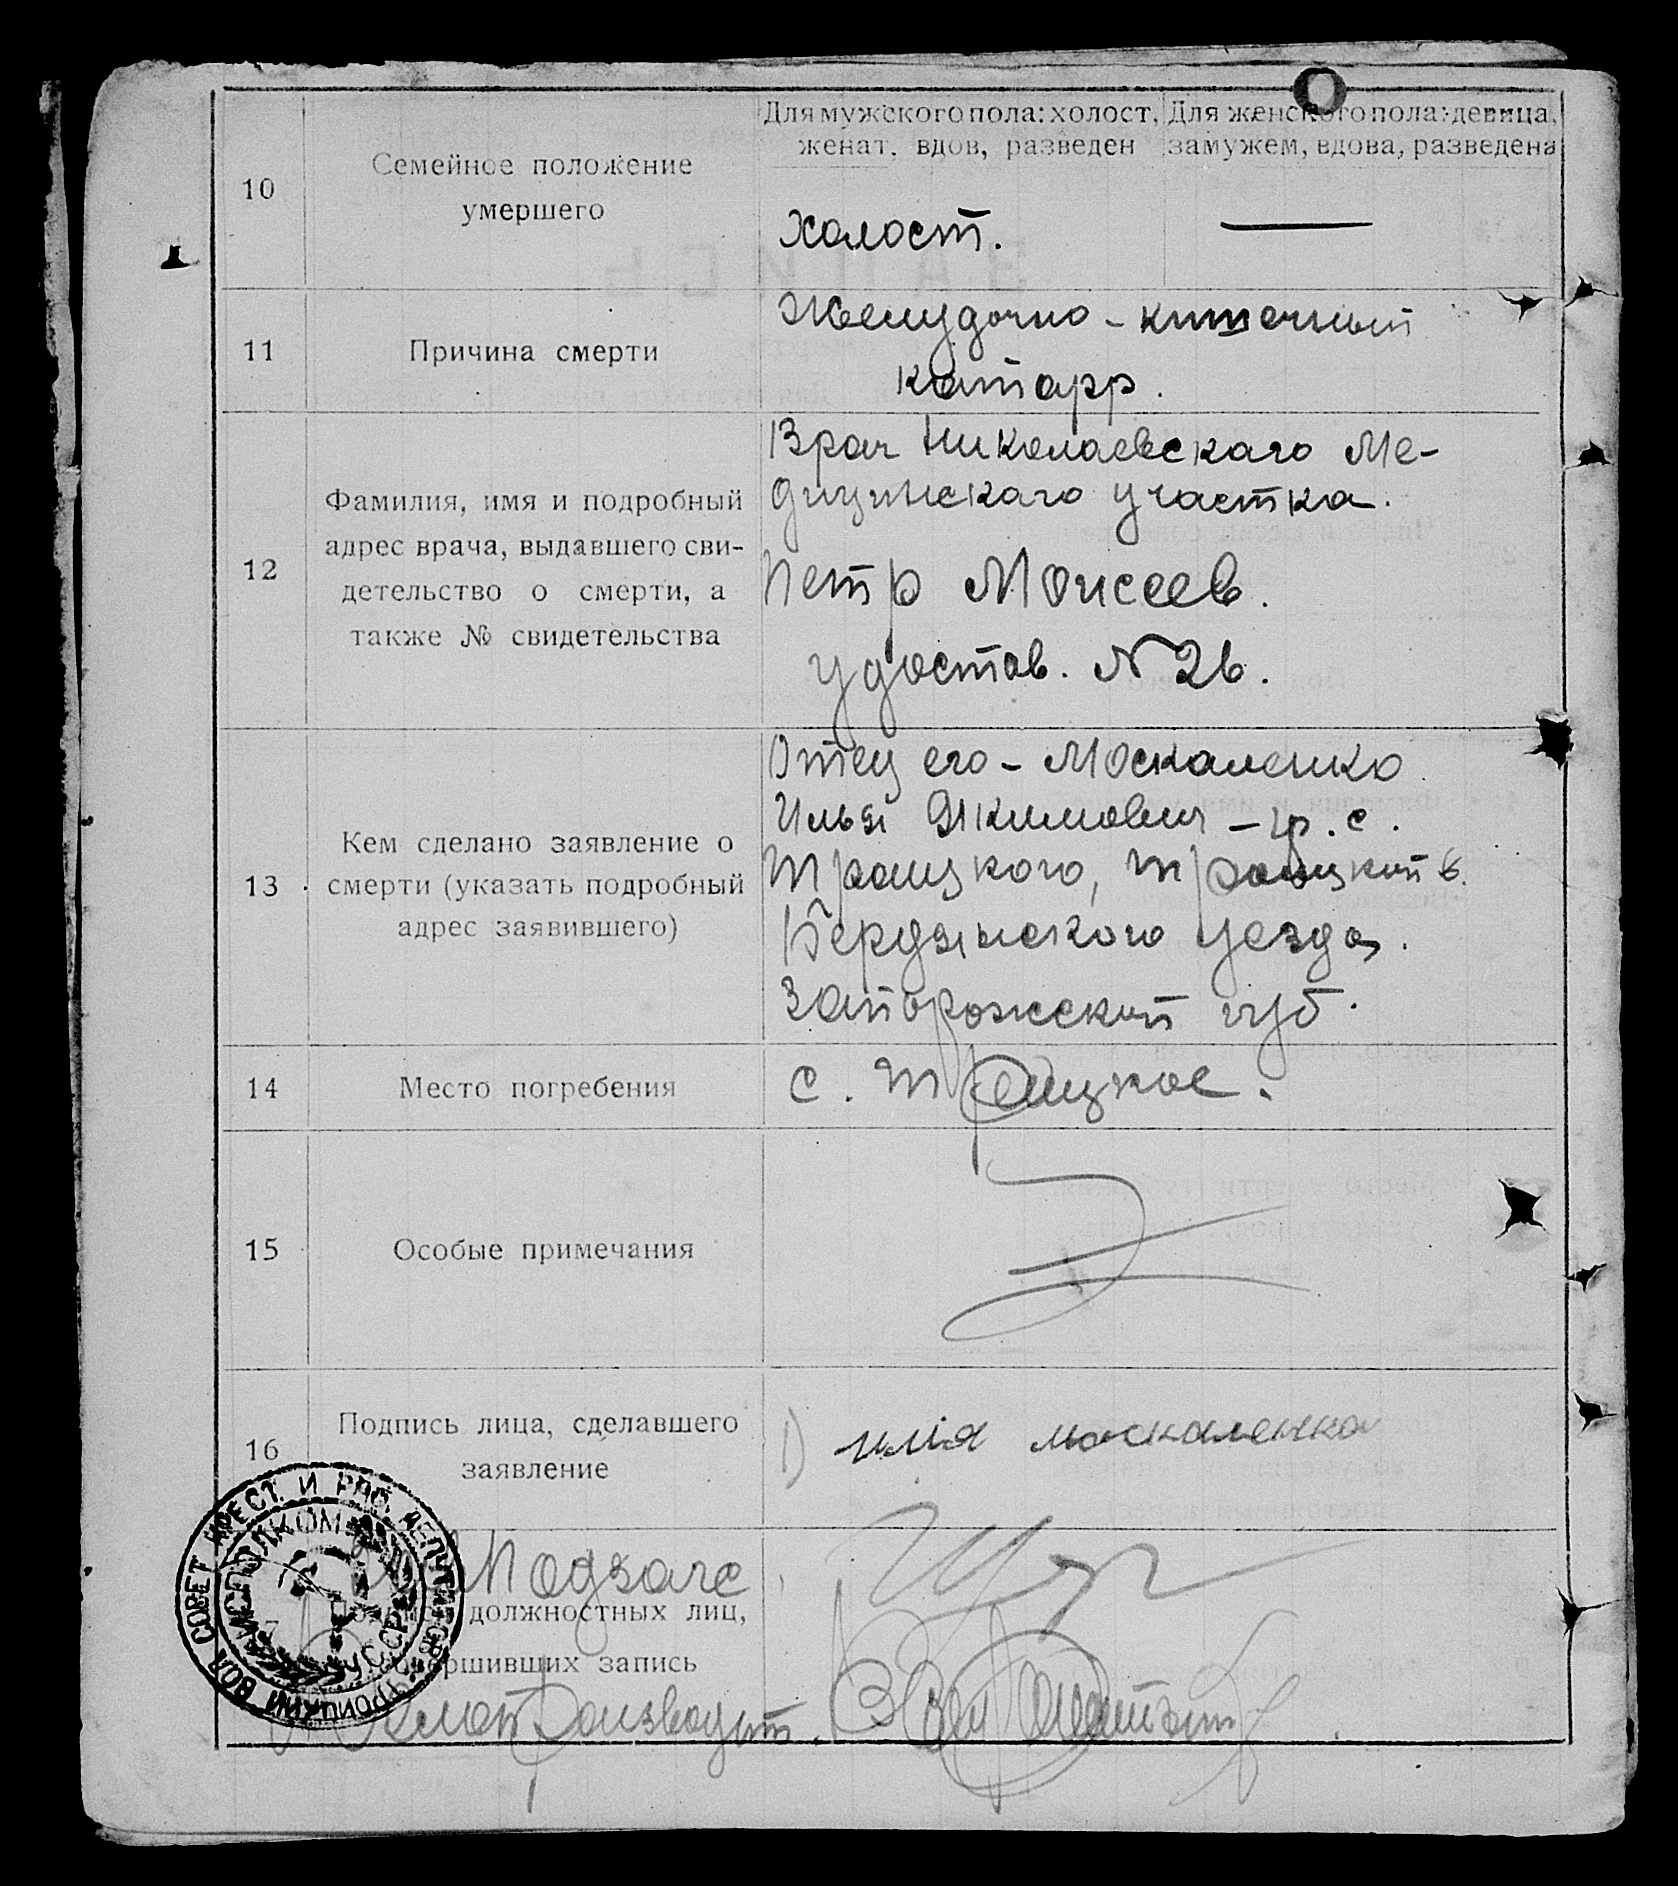 Для мужского пола: холост, женат, вдов, разведен
Для женского пола: девица, замужем, вдова, разведена
10
Семейное положение
умершего
холост.
11
Причина смерти
Желудочно-кишечный
катарр.
12
Фамилия, имя и подробный
адрес врача, выдавшего сви-
детельство о смерти, а
также № свидетельства
Врач Николаевскаго Ме-
дицинскаго участка.
Петр Моисеев.
удостов. №26.
13
Кем сделано заявление о
смерти (указать подробный
адрес заявившего)
Отец его - Москаленко
Илья Якимович - гр. с.
Троицкого, Троицкой в.
Бердянского уезда,
Запорожской губ.
14
Место погребения
с. Троицкое.
15
Особые примечания
16
Подпись лица, сделавшего
заявление
1) илія москаленко
должностных лиц,
совершивших запись
Делопроизводит.
ТРОИЦКИЙ ВОЛ СОВЕТ КРЕСТ. И РАБ. ДЕПУТАТОВ
ИСПОЛКОМ
УССР